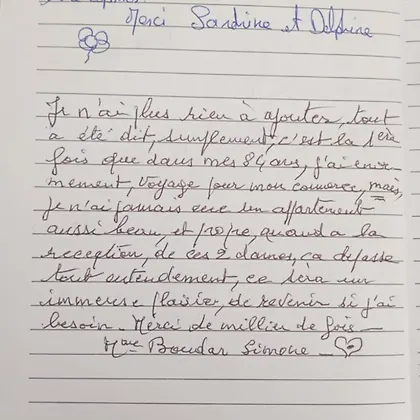 Merci Sandrine et Delphine
Je n'ai plus rien à ajouter, tout
a été dit, simplement, c'est la 1ère
fois que dans mes 84 ans, j'ai enor
mement, voyagé pour mon comerce, mais,
Je n'ai jamais vue un appartement
aussi beau, et propre, quand a la
reception, de ces 2 dames, ca depasse
tout entendement, ce sera un
immense plaisir, de revenir si j'ai
besoin - Merci de millier de fois -
Mme Boudar Simone -